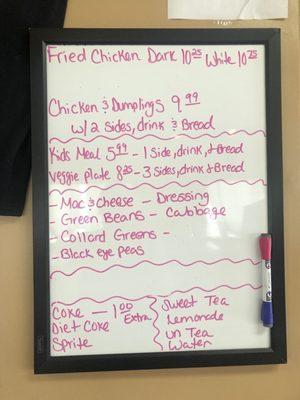 Fried Chicken Dark 10.25 White 10.75
Chicken & Dumplings 9.99
w/ 2 sides, drink & Bread
Kids Meal 5.99 - 1 Side, drink, & Bread
Veggie Plate 8.25 - 3 Sides, drink & Bread
- Mac & Cheese - Dressing
- Green Beans - Cabbage
- Collard Greens -
- Black eye peas
Coke - 1.00 Extra
Diet Coke
Sprite
Sweet Tea
Lemonade
un Tea
Water